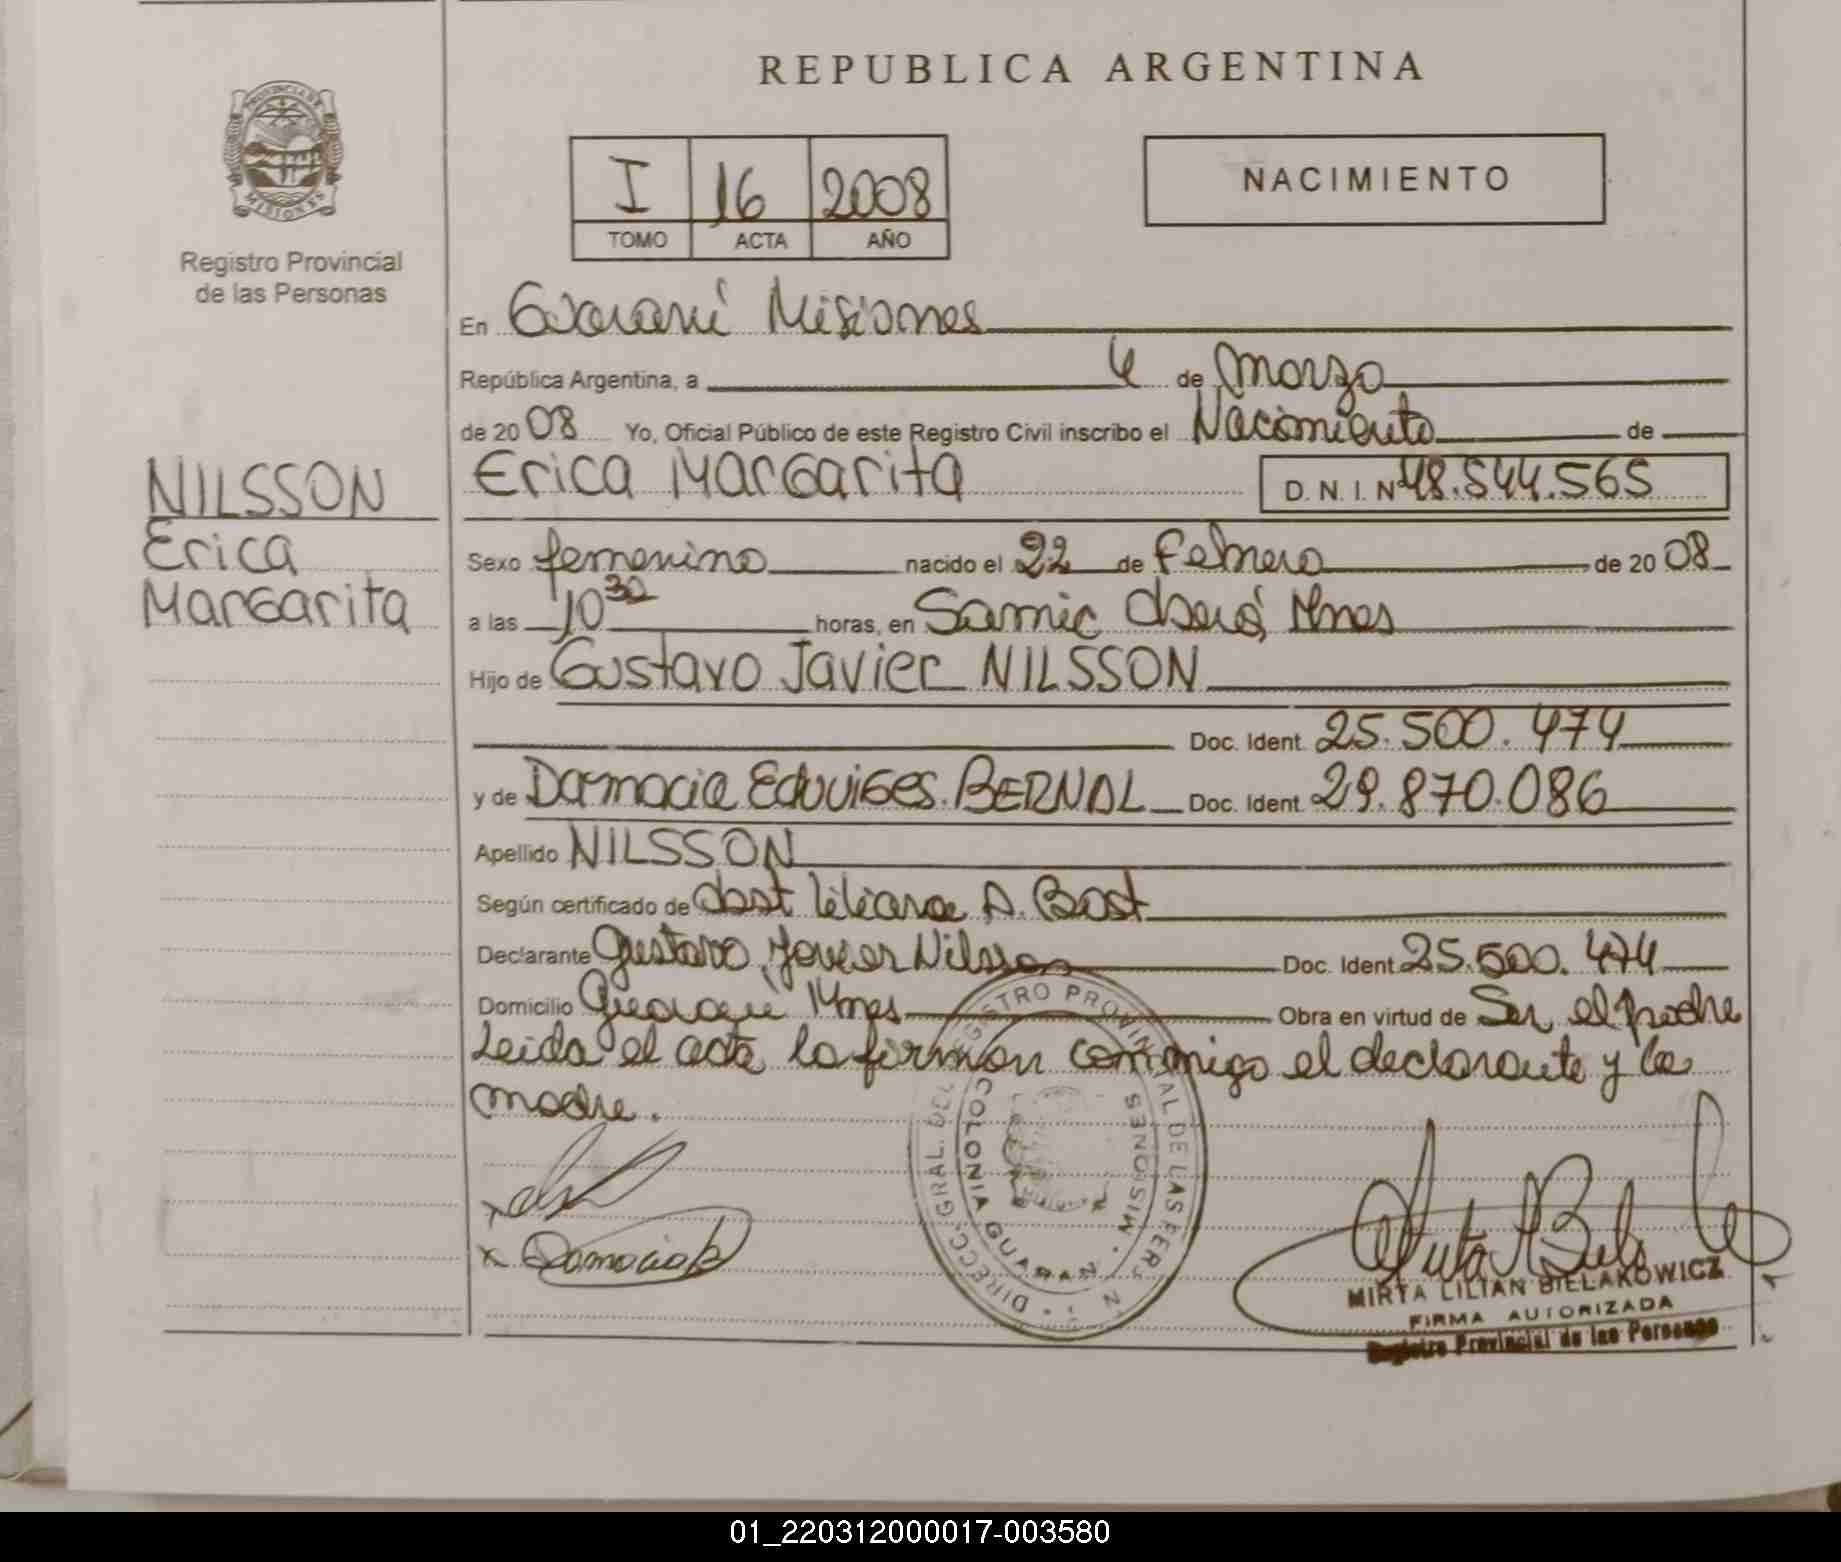 REPUBLICA ARGENTINA
PROVINCIA DE MISIONES
Registro Provincial
de las Personas
I 16 2008
TOMO ACTA AÑO
NACIMIENTO
En Guaraní Misiones
República Argentina, a 4 de Marzo
de 2008 Yo, Oficial Público de este Registro Civil inscribo el Nacimiento de
NILSSON
Erica
Margarita
Erica Margarita D.N.I. Nº 48.544.565
Sexo femenino nacido el 22 de Febrero de 2008
a las 10 30 horas, en Samic Oberá, Mnes
Hijo de Gustavo Javier NILSSON
Doc. Ident. 25.500.474
y de Damacia Eduviges BERNAL Doc. Ident. 29.870.086
Apellido NILSSON
Según certificado de Obst Liliana A. Bost
Declarante Gustavo Javier Nilsson Doc. Ident. 25.500.474
Domicilio Guaraní Mnes Obra en virtud de Ser el padre
Leida el acta la firman conmigo el declarante y la
madre.
DIRECC. GRAL. DEL REGISTRO PROVINCIAL DE LAS PERS
COLONIA GUARANI - MISIONES
x
x Damacia B
MIRTA LILIAN BIELAKOWICZ
FIRMA AUTORIZADA
Registro Provincial de las Personas
01_220312000017-003580